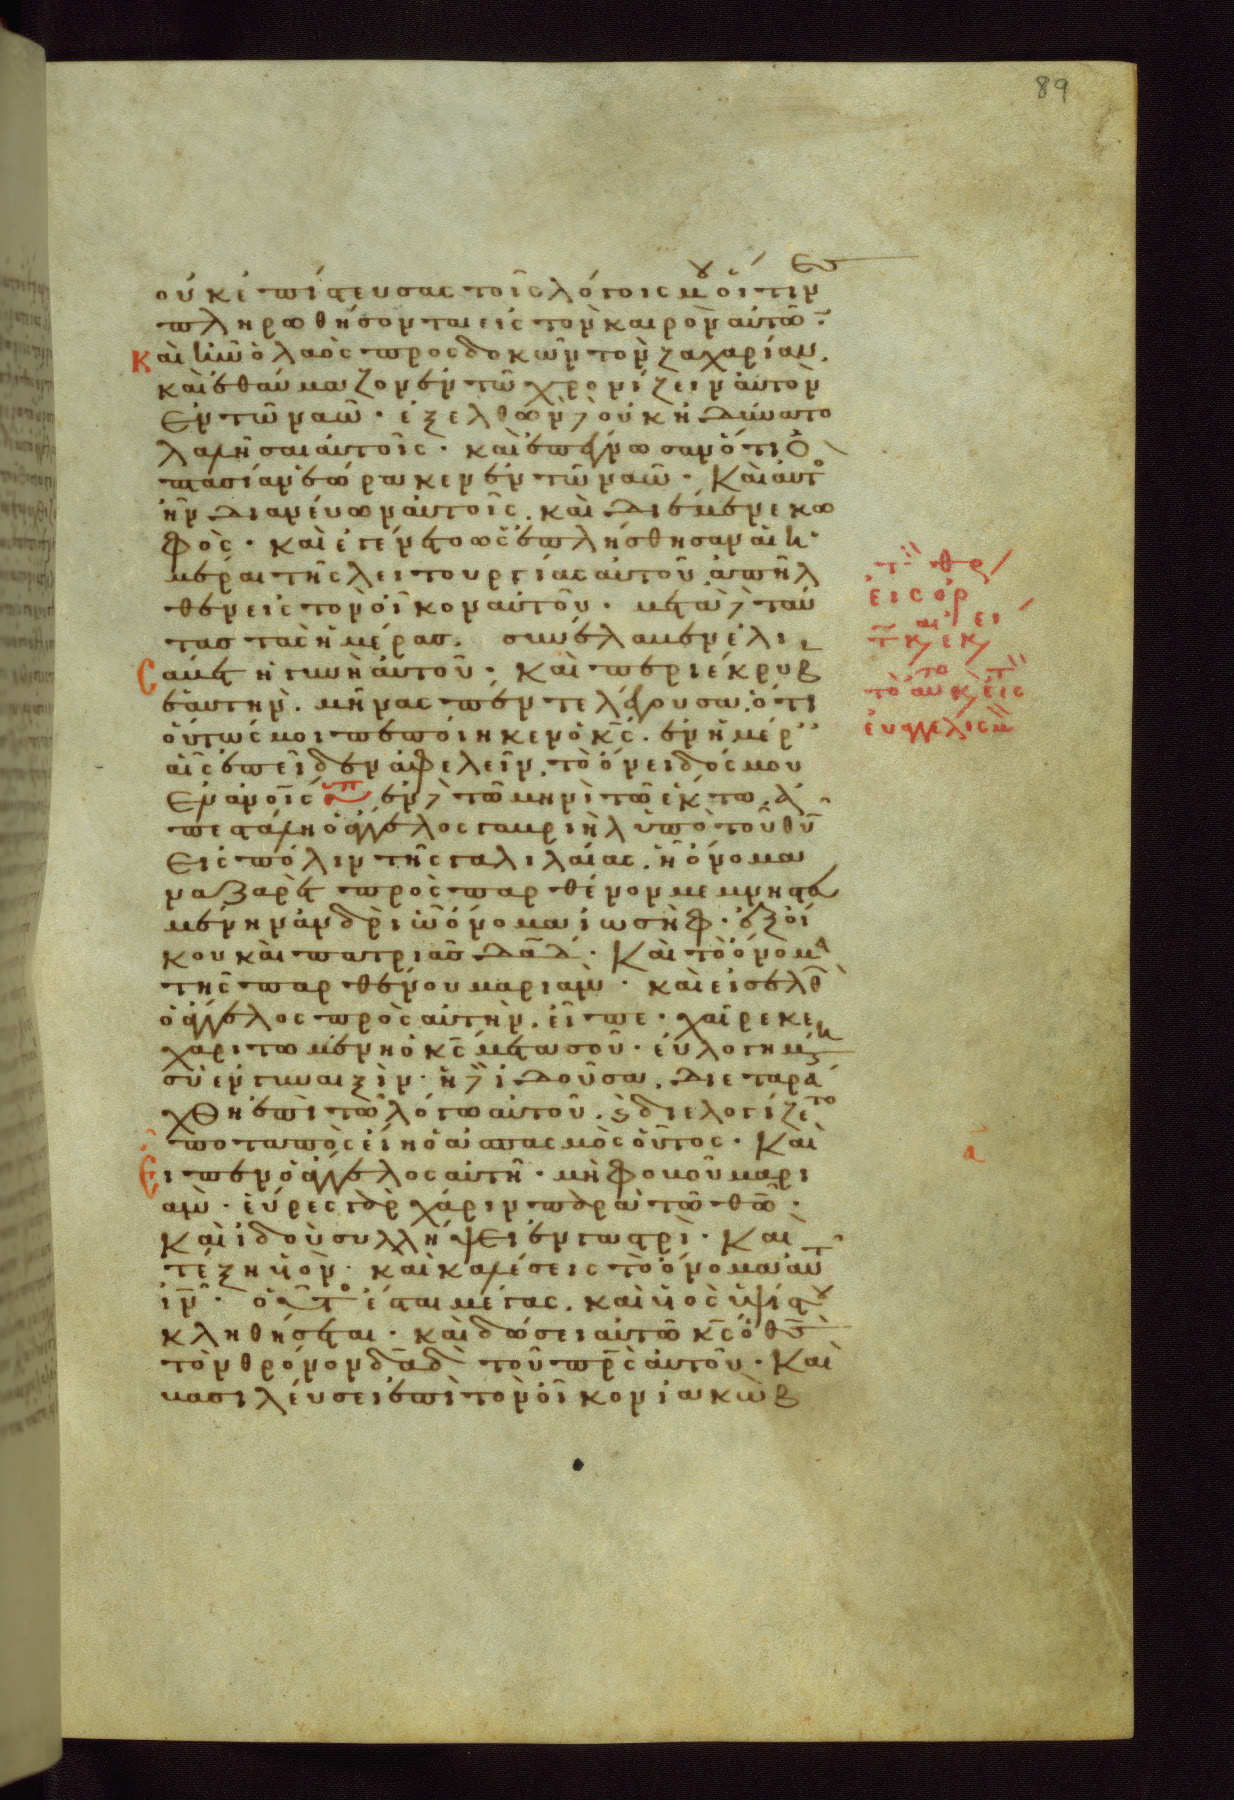 89
οὐκ ἐπίστευσας τοῖς λόγοις μου οἵτιν
πληρωθήσονται εἰς τὸν καιρὸν αὐτῶν·
Καὶ ἦν ὁ λαὸς προσδοκῶν τὸν ζαχαρίαν.
καὶ ἐθαύμαζον ἐν τῶ χρονίζειν αὐτὸν
ἐν τῶ ναῶ· ἐξελθὼν δὲ οὐκ ἠδύνατο
λαλῆσαι αὐτοῖς· καὶ ἐπέγνωσαν ὅτι ὀ
πτασίαν ἑώρακεν ἐν τῶ ναῶ· Καὶ αὐτὸ
ἦν διανεύων αὐτοῖς. καὶ διέμενε κω
φὸς· καὶ ἐγένετο ὡς ἐπλήσθησαν αἱ ἡ
μέραι τῆς λειτουργίας αὐτοῦ. ἀπῆλ
θεν εἰς τὸν οἶκον αὐτοῦ· μετὰ δὲ ταύ
τας τὰς ἡμέρας. συνέλαβεν ἐλι
σάβετ ἡ γυνὴ αὐτοῦ· Καὶ περιέκρυβ
ἑαυτὴν. μῆνας πέντε λέγουσα. ὅτι
οὕτως μοι πεποίηκεν ὁ κς. ἐν ἡμέρ
αἷς ἐπεῖδεν ἀφελεῖν. τὸ ὄνειδός μου
ἐν ανοις ἐν δὲ τῶ μηνὶ τῶ ἕκτω. ἀ
πεστάλη ὁ ἄγγελος γαβριὴλ ὑπὸ τοῦ θυ
εἰς πόλιν τῆς γαλιλαίας. ἧ ὄνομα
ναζαρὲτ πρὸς παρθένον μεμνηστευ
μένην ἀνδρὶ ὧ ὄνομα ἰωσὴφ· ἐξ οἴ
κου καὶ πατριᾶς δαδ· Καὶ τὸ ὄνομα
τῆς παρθένου μαριὰμ· καὶ εἰσελθ
ὁ ἄγγελος πρὸς αὐτὴν. εἶπε· χαῖρε κε
χαριτωμένη ὁ κς μετὰ σοῦ· εὐλογημέ
σὺ ἐν γυναιξὶν· ἡ δὲ ἰδοῦσα. διεταρά
χθη ἐπὶ τῶ λόγω αὐτοῦ. καὶ διελογίζετο
ποταπὸς εἴη ὁ ἀσπασμὸς οὗτος· Καὶ
εἶπεν ὁ ἄγγελος αὐτῆ· μὴ φοβοῦ μαρι
ὰμ· εὗρες γὰρ χάριν παρὰ τῶ θῶ·
Καὶ ἰδοὺ συλλήψει ἐν γαστρὶ· Καὶ
τέξη υἱὸν· καὶ καλέσεις τὸ ὄνομα αὐτ
ιν· οὗτο ἔσται μέγας. καὶ υἱὸς ὑψίστου
κληθήσεται· καὶ δώσει αὐτῶ κς ὁ θς
τὸν θρόνον δαδ τοῦ πρς αὐτοῦ· Καὶ
βασιλεύσει ἐπὶ τὸν οἶκον ἰακὼβ